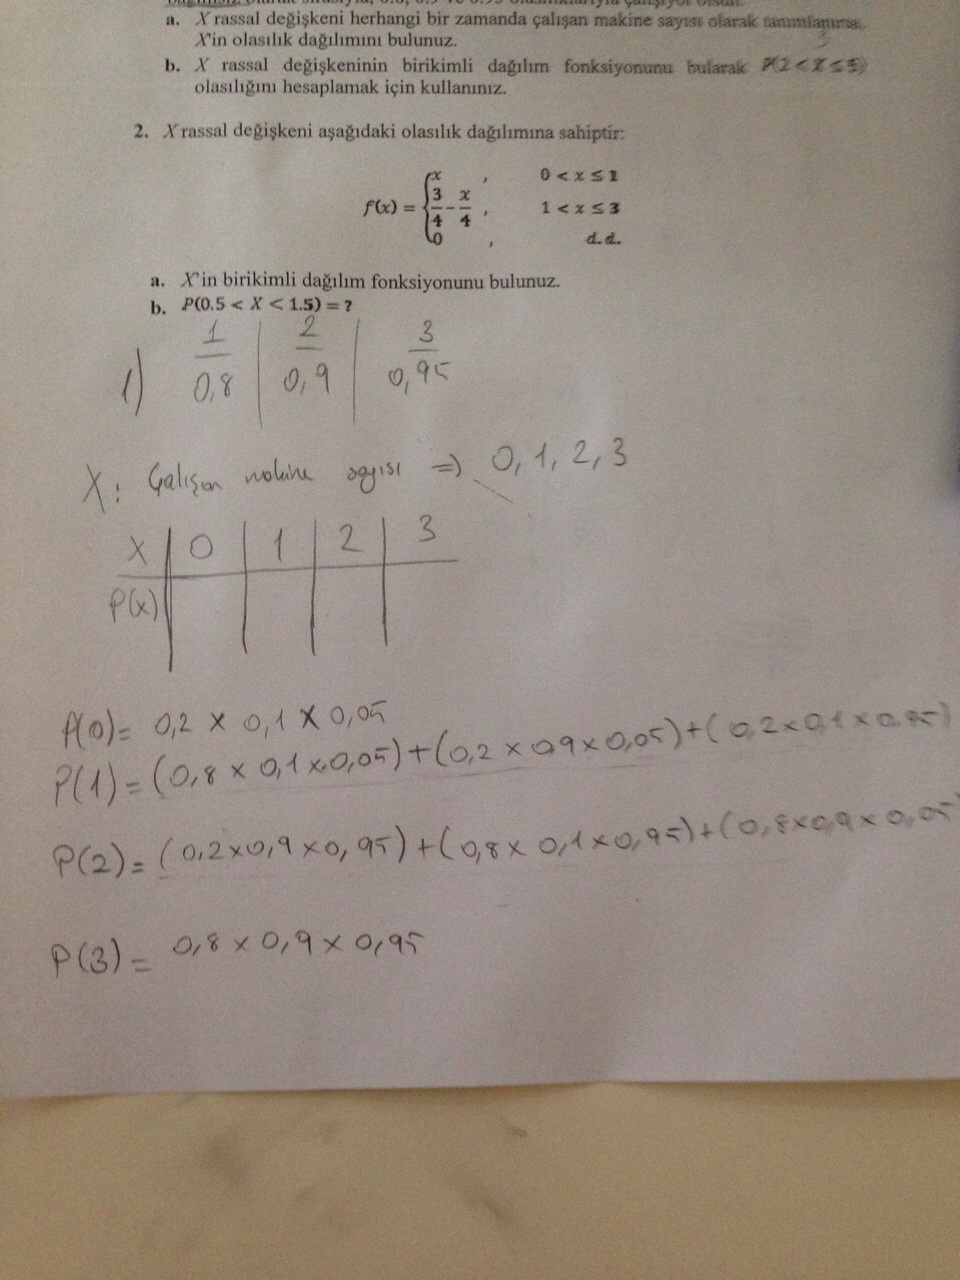 bağımsız olarak sırasıyla, 0.8, 0.9 ve 0.95 olasılıklarıyla çalışıyor olsun.
a. X rassal değişkeni herhangi bir zamanda çalışan makine sayısı olarak tanımlanırsa,
X'in olasılık dağılımını bulunuz.
3
b. X rassal değişkeninin birikimli dağılım fonksiyonunu bularak P(2 < X ≤ 5)
olasılığını hesaplamak için kullanınız.
2. X rassal değişkeni aşağıdaki olasılık dağılımına sahiptir:
x , 0 < x ≤ 1
f(x) = { 3/4 - x/4 , 1 < x ≤ 3
0 , d.d.
a. X'in birikimli dağılım fonksiyonunu bulunuz.
b. P(0.5 < X < 1.5) = ?
1) 1 | 2 | 3
0,8 | 0,9 | 0,95
X: Çalışan makine sayısı => 0, 1, 2, 3
X | 0 | 1 | 2 | 3
P(x)
P(0) = 0,2 x 0,1 x 0,05
P(1) = (0,8 x 0,1 x 0,05) + (0,2 x 0,9 x 0,05) + (0,2 x 0,1 x 0,95)
P(2) = (0,2 x 0,9 x 0,95) + (0,8 x 0,1 x 0,95) + (0,8 x 0,9 x 0,05
P(3) = 0,8 x 0,9 x 0,95